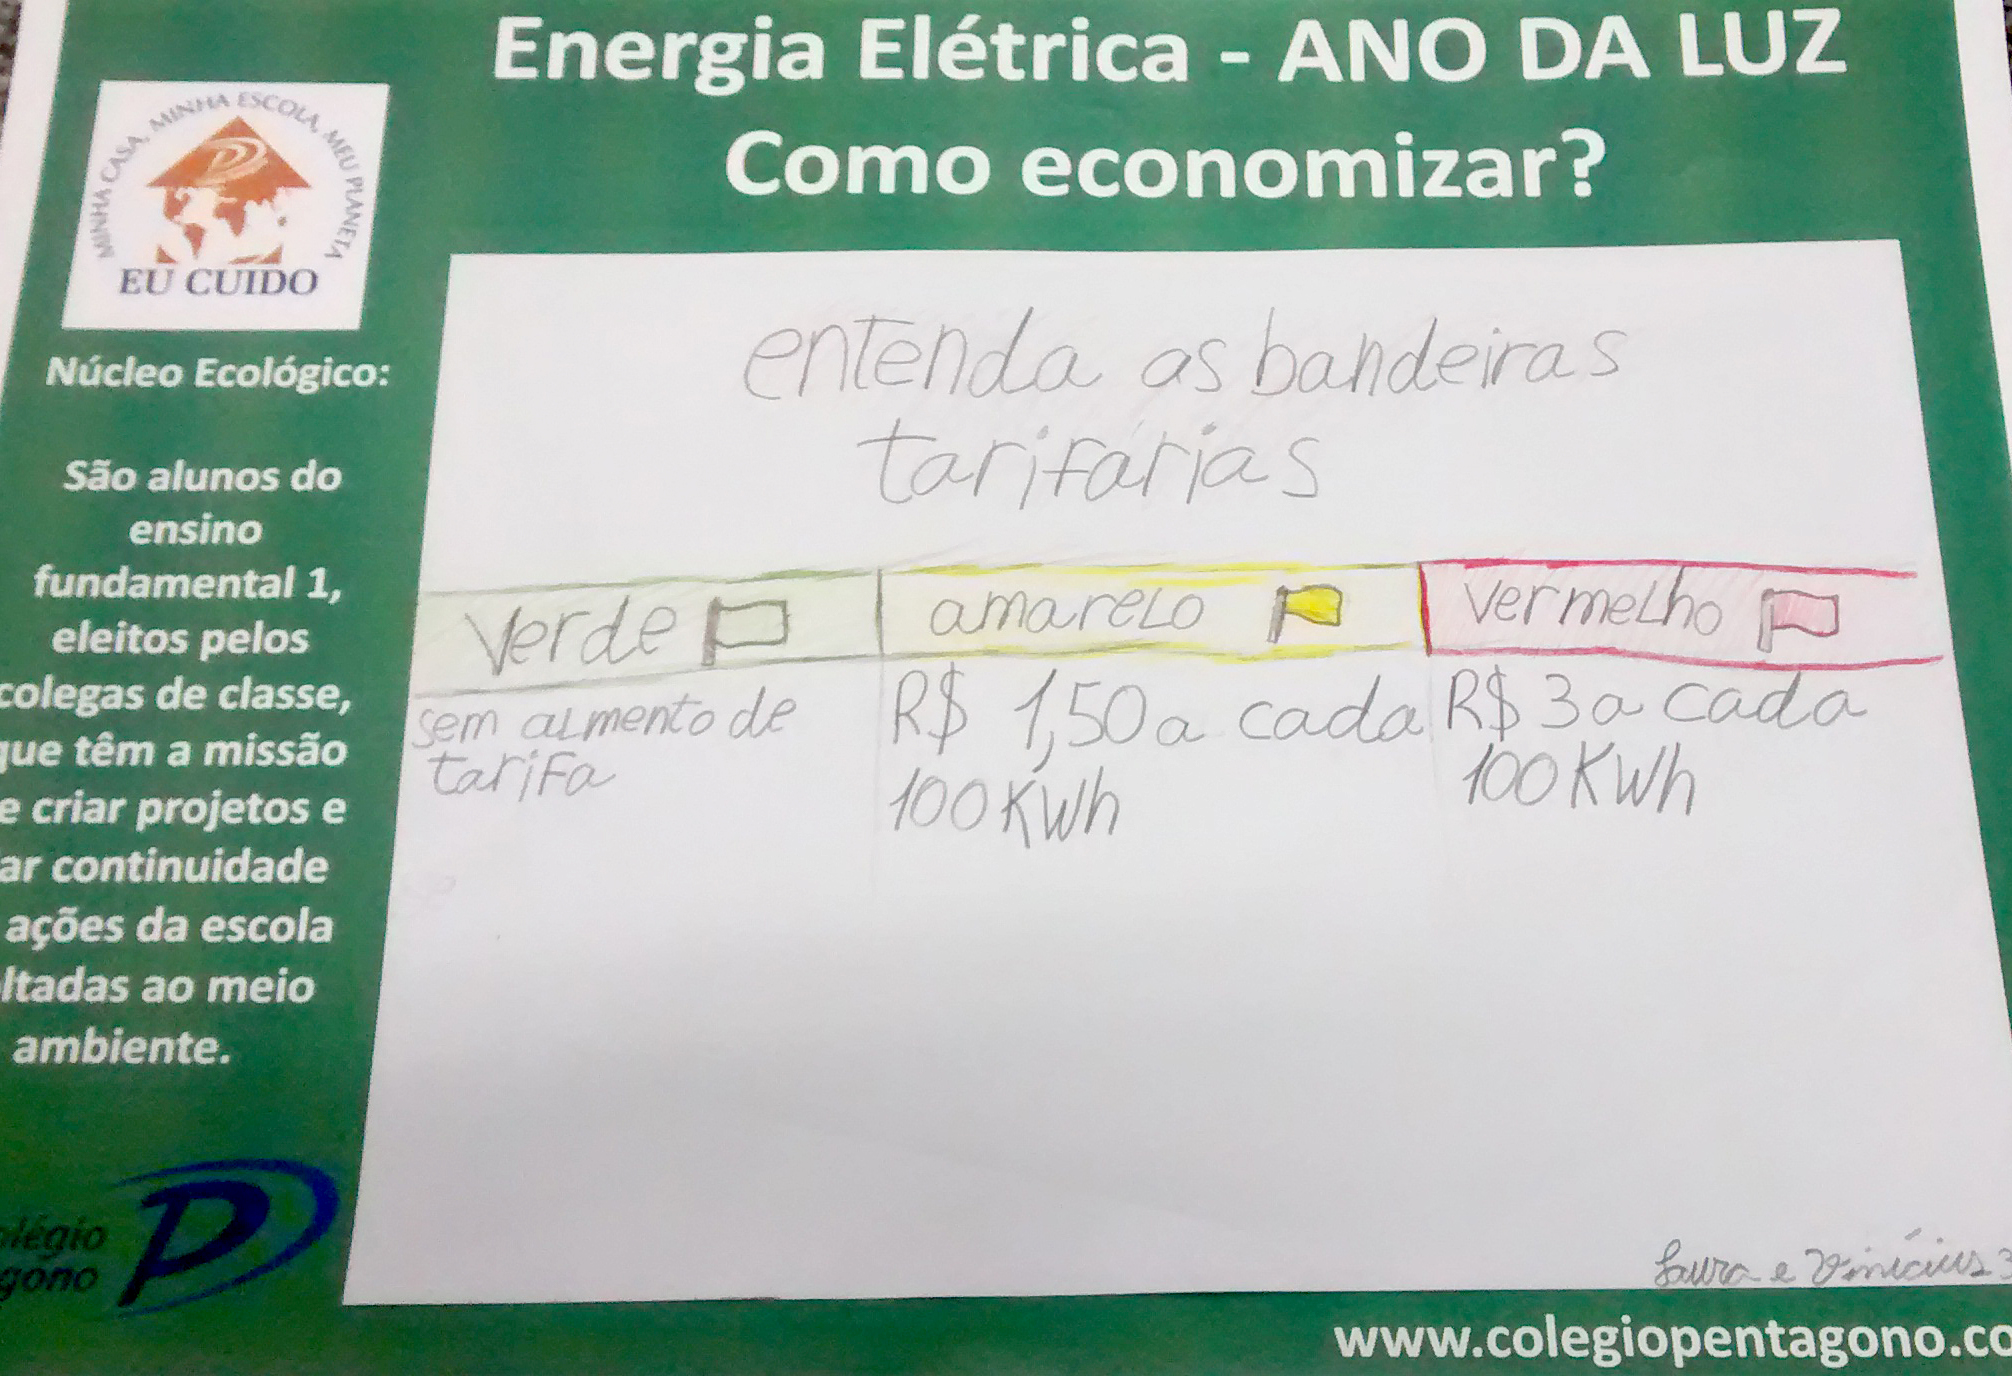 Energia Elétrica - ANO DA LUZ
Como economizar?
MINHA CASA, MINHA ESCOLA, MEU PLANETA
EU CUIDO
Núcleo Ecológico:
São alunos do
ensino
fundamental 1,
eleitos pelos
colegas de classe,
que têm a missão
e criar projetos e
ar continuidade
ações da escola
ltadas ao meio
ambiente.
entenda as bandeiras
tarifárias
verde
sem aumento de
tarifa
amarelo
R$ 1,50 a cada
100 KWh
vermelho
R$ 3 a cada
100 KWh
Laura e Vinícius 3
olégio
gono
www.colegiopentagono.co